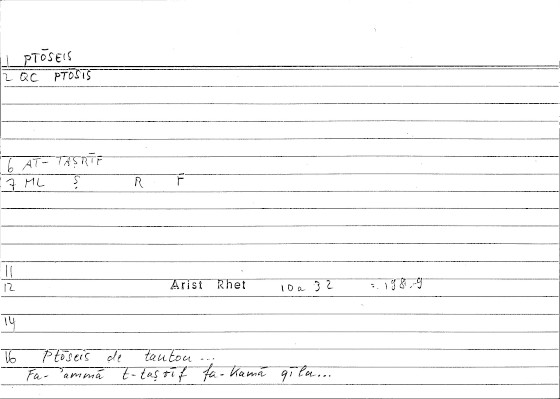 1 PTŌSEIS
2 QC PTŌSIS
6 AT-TAṢRĪF
7 ML Ṣ R F
11
12 Arist Rhet 10a 32 = 198.9
14
16 Ptōseis de tautou...
Fa-'ammā t-taṣrīf fa-kamā qīla...